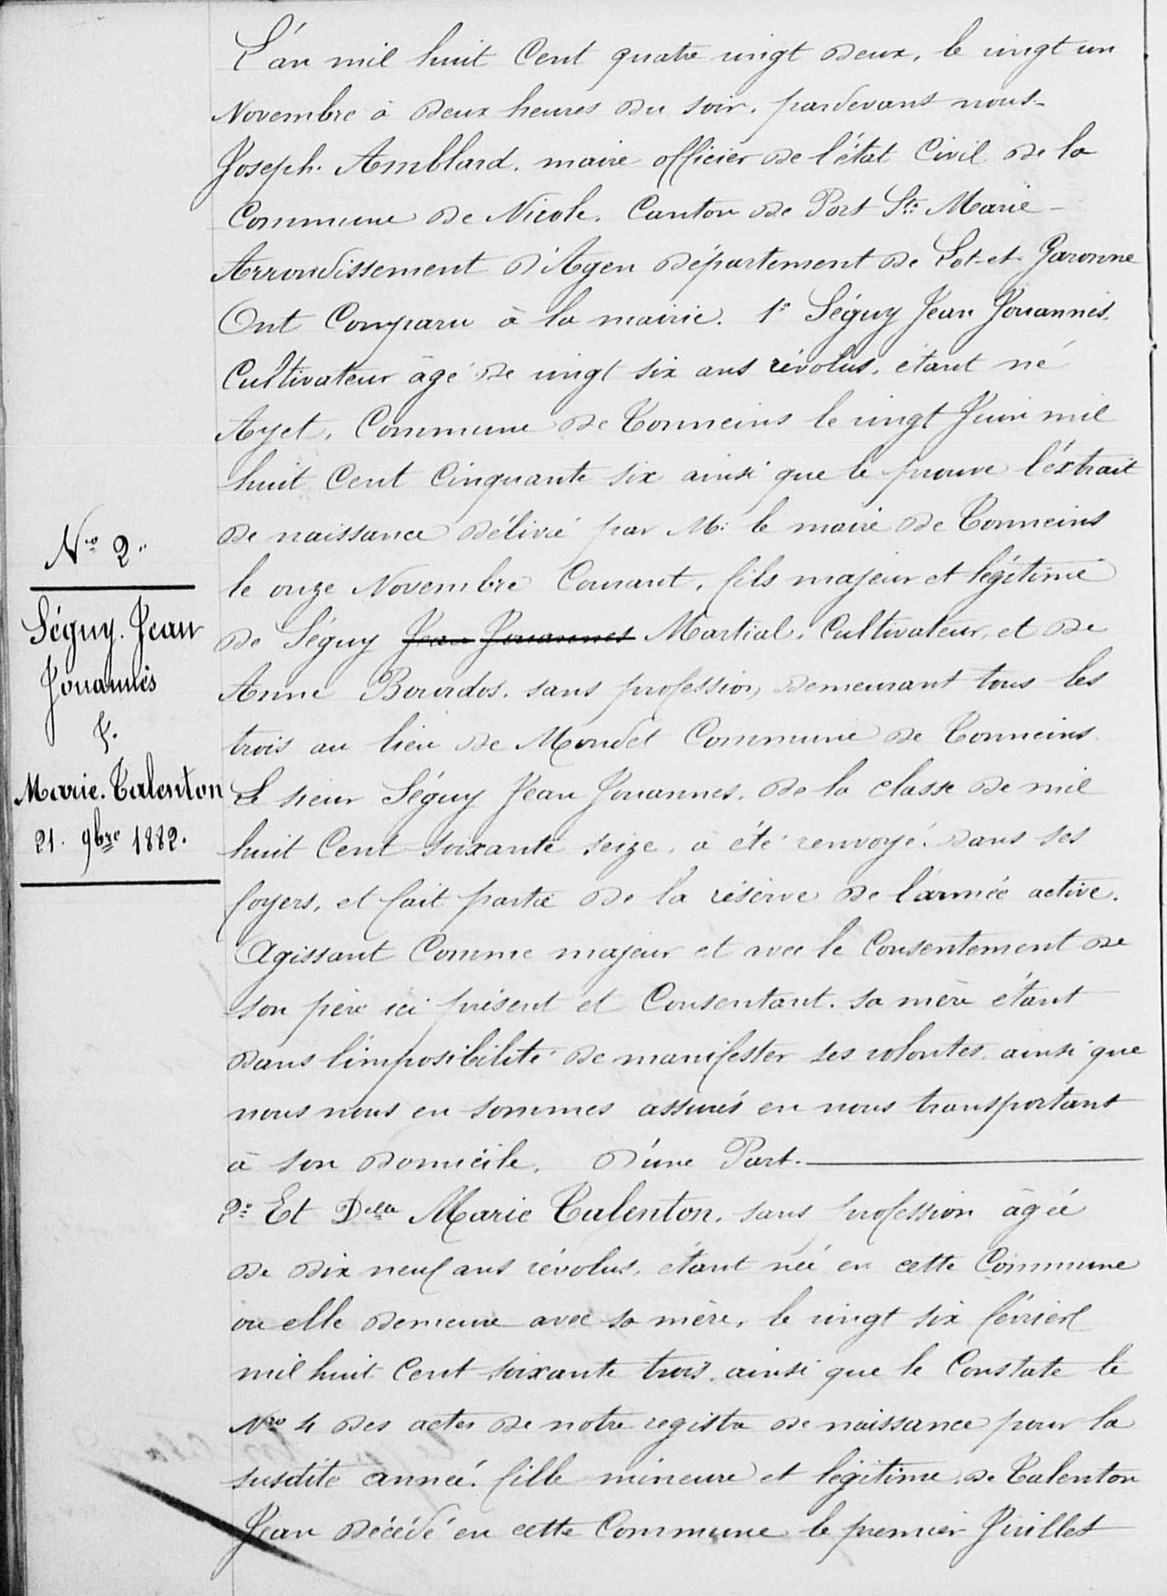 L'án mil huit Cent quatre vingt deux, le vingt un
Novembre à deux heures du soir, pardevant nous-
Joseph Amblard, maire officier de l'état Civil de la
Commune de Nicole, Canton de Port Ste Marie -
Arrondissement d'Agen département de Lot-et-Garonne
Ont Comparu à la mairie. 1° Séguy Jean Jouannés,
Cultivateur âgé de vingt six ans révolus, étant né
Ayet, Commune de Tonneins le vingt Juin mil
huit Cent Cinquante six ainsi que le prouve l'éxtrait
de naissance délivré par Mr le maire de Tonneins
le onze Novembre Courant, fils majeur et légitime
de Séguy Jean Jouannes Martial, Cultivateur, et de
Anne Bourdos, sans profession, demeurant tous les
trois au lieu de Mondet Commune de Tonneins.
Le sieur Séguy Jean Jouannes, de la classe de mil
huit Cent soixante seize, a été renvoyé dans ses
foyers, et fait partie de la réserve de l'armée active.
Agissant Comme majeur et avec le Consentement de
son père ici présent et Consentant, sa mère étant
dans l'imposibilité de manifester ses volontes, ainsi que
nous nous en sommes assurés en nous transportant
à son domicile, d'une Part.
2° Et Delle Marie Talenton, sans profession âgée
de dix neuf ans révolus, étant née en cette Commune
ou elle demeure avec sa mère, le vingt six février
mil huit Cent soixante trois, ainsi que le Constate le
Nro 4 des actes de notre registre de naissance pour la
susdite année, fille mineure et légitime de Talenton
Jean décédé en cette Commune le premier Juillet
Nro 2.
Séguy. Jean
Jouannés
&.
Marie. Talenton
21. 9bre 1882.